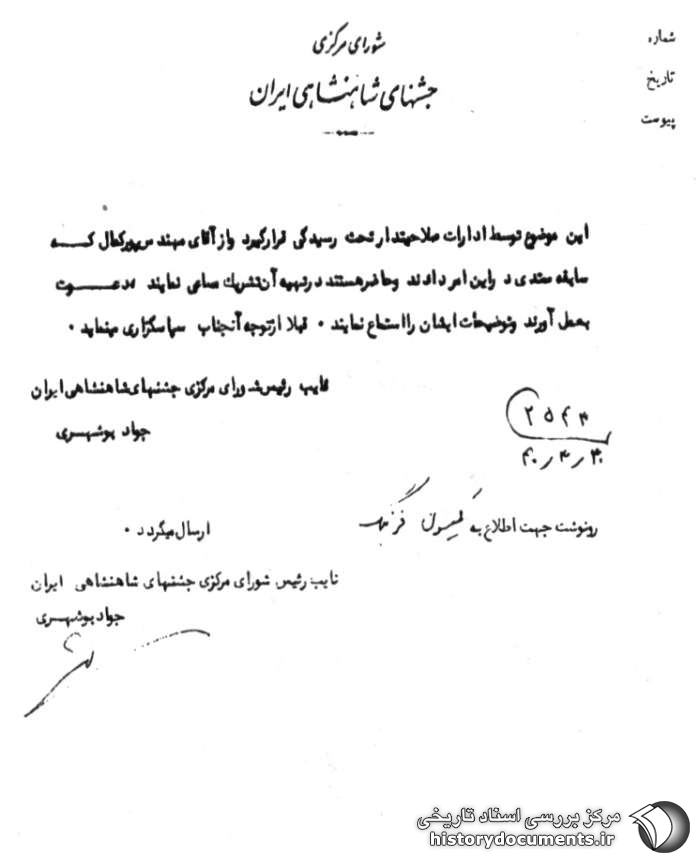 شورای مرکزی
جشنهای شاهنشاهی ایران
شماره
تاریخ
پیوست
این موضوع توسط ادارات صلاحیتدار تحت رسیدگی قرارگیرد و از آقای مهندس پورکمال که
سابقه ممتدی در این امر دارند و حاضر هستند در تهیه آن تشریک مساعی نمایند دعوت
بعمل آورند و توضیحات ایشان را استماع نمایند ۰ قبلا از توجه آنجناب سپاسگزاری مینماید ۰
نایب رئیس شورای مرکزی جشنهای شاهنشاهی ایران
جواد بوشهری
۴۰/۴/۲۰
رونوشت جهت اطلاع به کمیسیون فرهنگ ارسال میگردد ۰
نایب رئیس شورای مرکزی جشنهای شاهنشاهی ایران
جواد بوشهری
مرکز بررسی اسناد تاریخی
historydocuments.ir